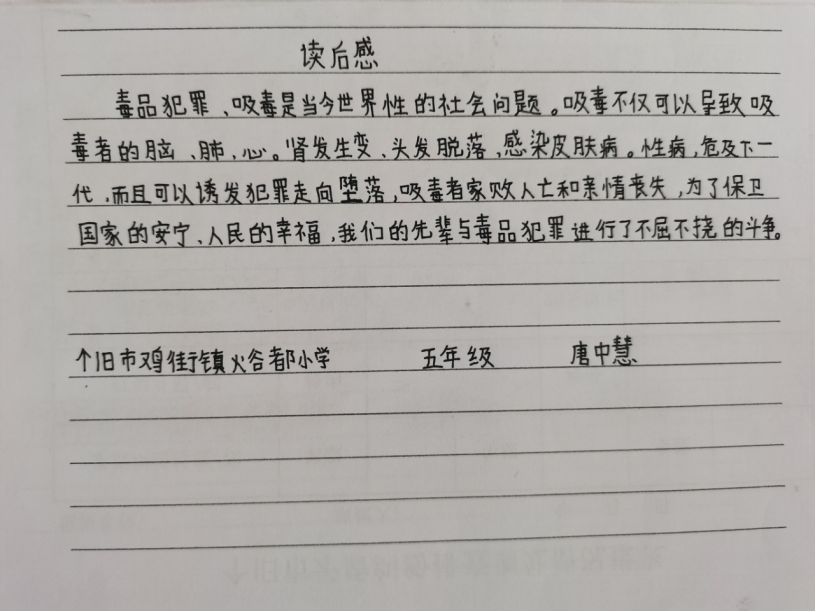 读后感
毒品犯罪、吸毒是当今世界性的社会问题。吸毒不仅可以导致吸
毒者的脑、肺、心。肾发生变、头发脱落、感染皮肤病。性病,危及下一
代,而且可以诱发犯罪走向堕落,吸毒者家败人亡和亲情丧失,为了保卫
国家的安宁、人民的幸福,我们的先辈与毒品犯罪进行了不屈不挠的斗争。
个旧市鸡街镇火谷都小学 五年级 唐中慧